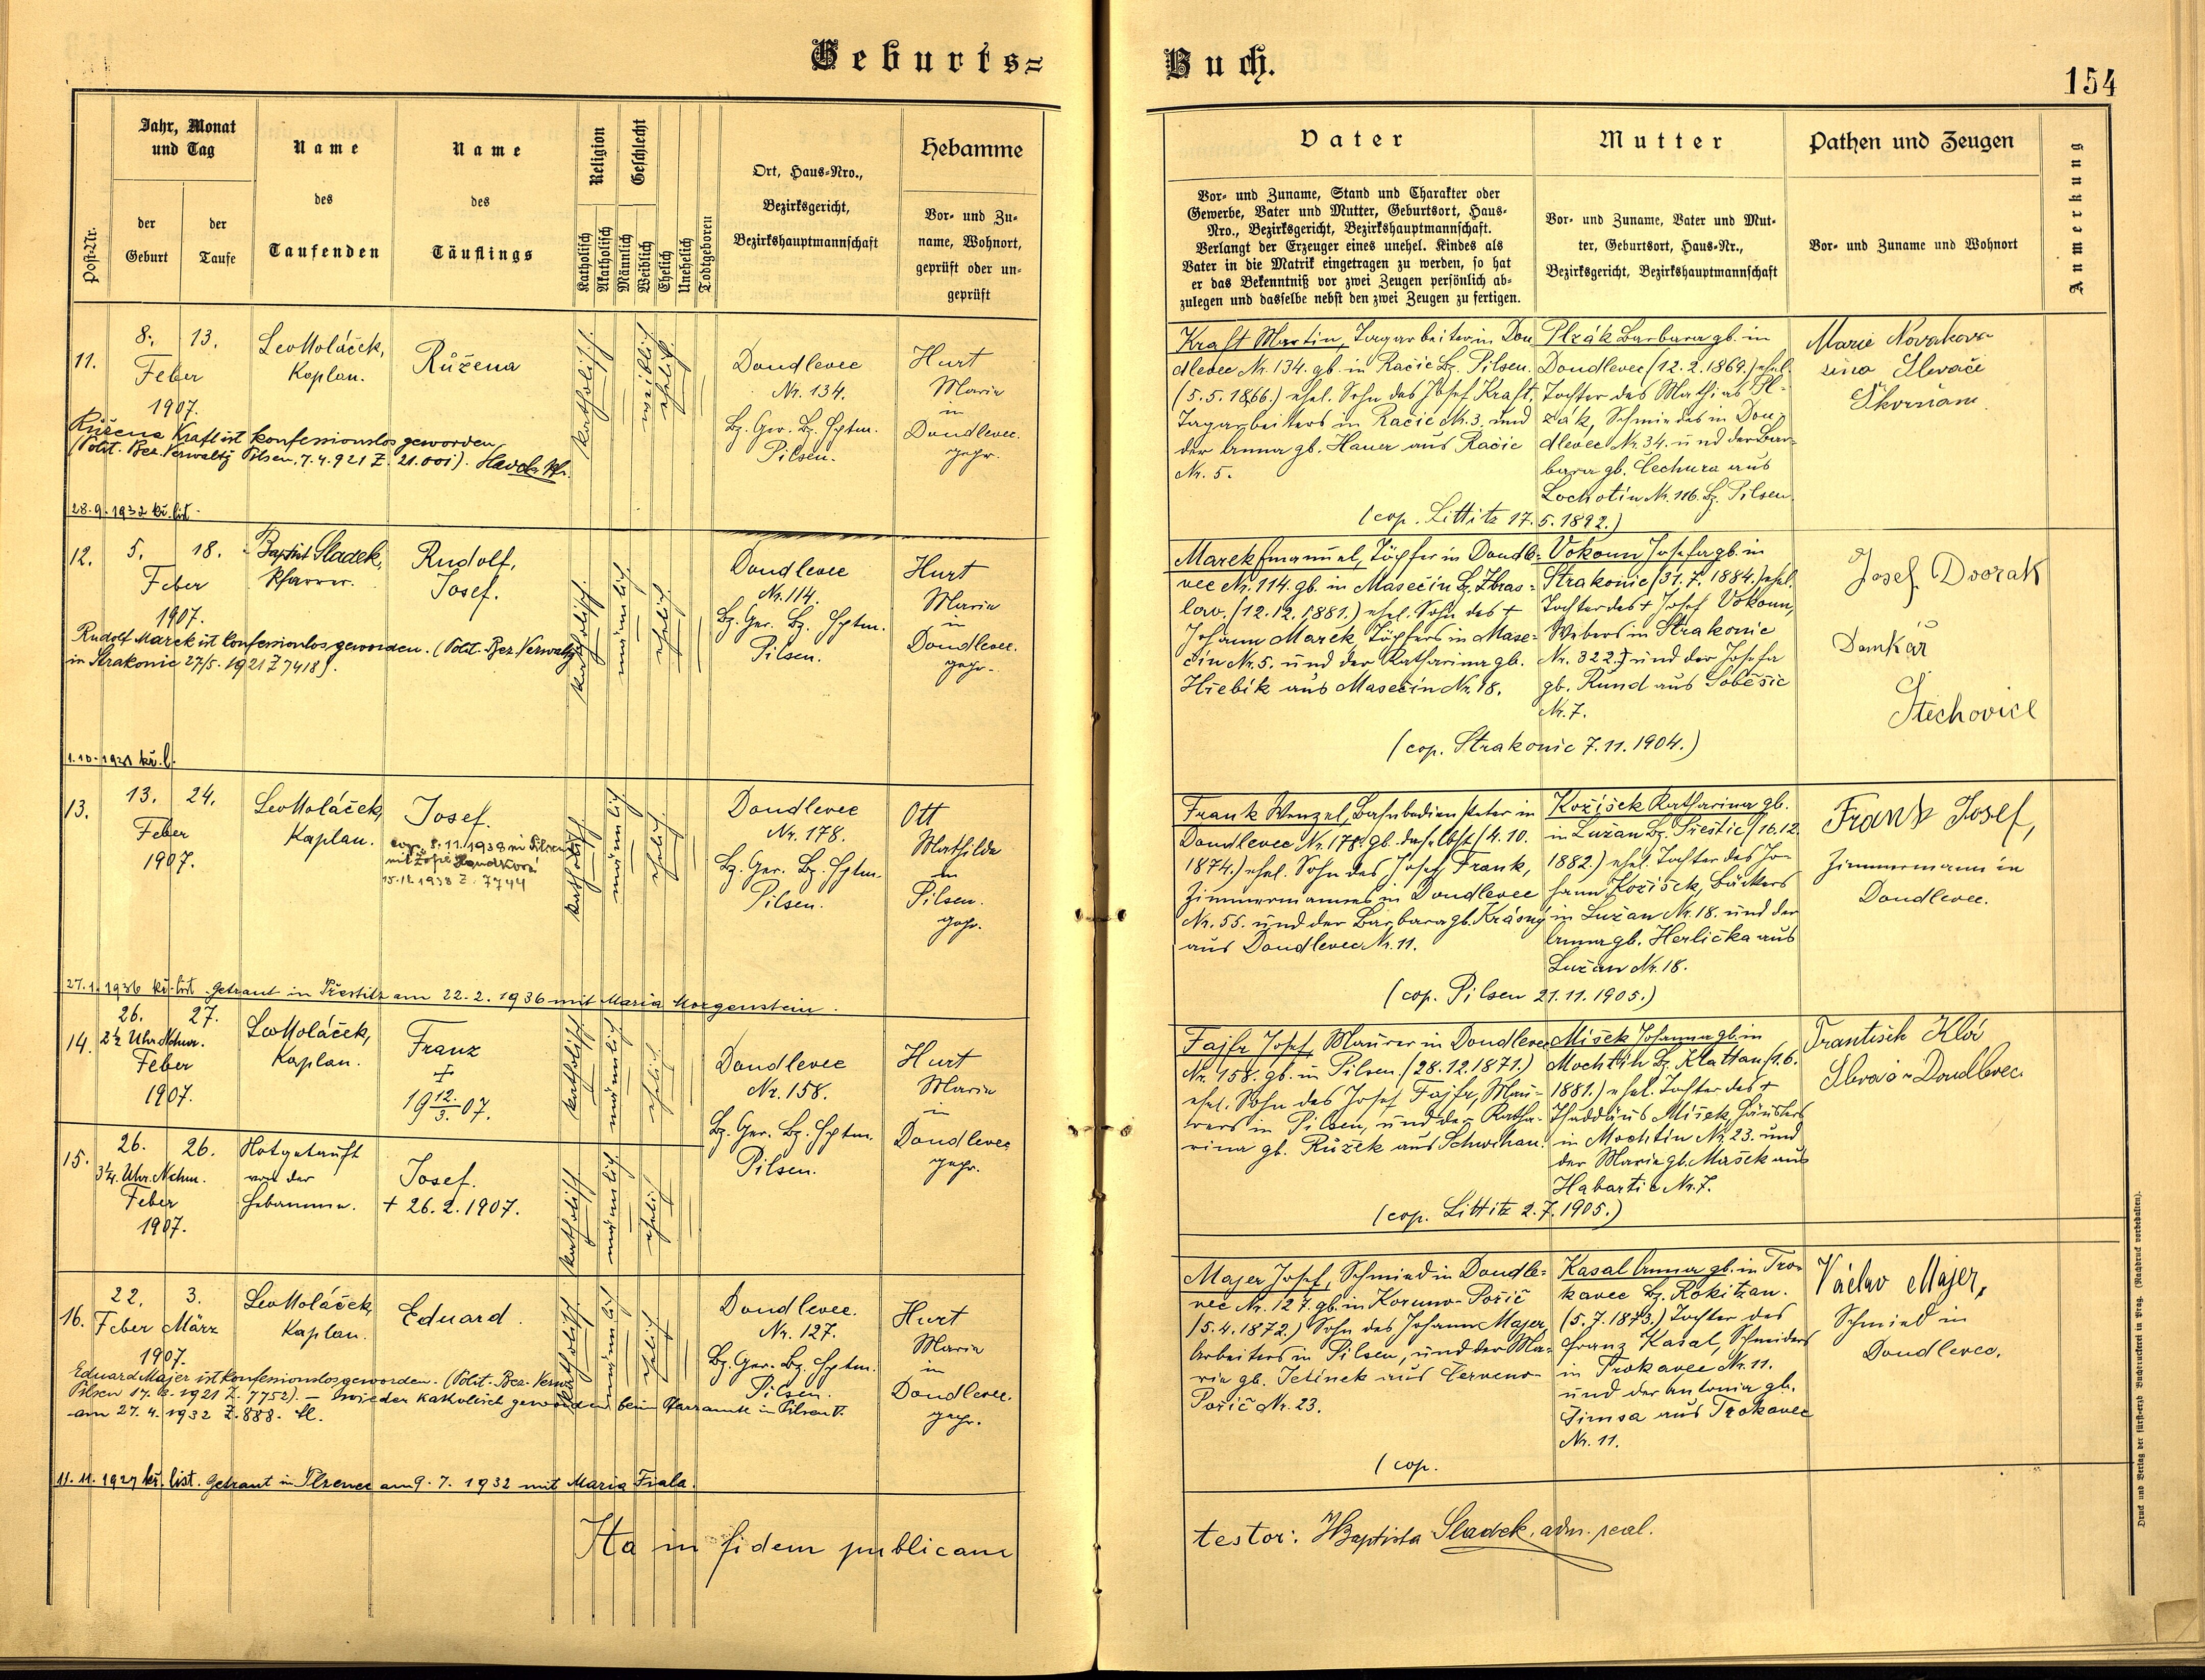 Geburts=
Buch.
154
Post-Nr.
Jahr, Monat
und Tag
der
Geburt
der
Taufe
Name
des
Taufenden
Name
des
Täuflings
Religion
Katholisch
Akatholisch
Geschlecht
Männlich
Weiblich
Ehelich
Unehelich
Todtgeboren
Ort, Haus-Nro.,
Bezirksgericht,
Bezirkshauptmannschaft
Hebamme
Vor- und Zu-
name, Wohnort,
geprüft oder un-
geprüft
Vater
Vor- und Zuname, Stand und Charakter oder
Gewerbe, Vater und Mutter, Geburtsort, Haus-
Nro., Bezirksgericht, Bezirkshauptmannschaft.
Verlangt der Erzeuger eines unehel. Kindes als
Vater in die Matrik eingetragen zu werden, so hat
er das Bekenntniß vor zwei Zeugen persönlich ab-
zulegen und dasselbe nebst den zwei Zeugen zu fertigen.
Mutter
Vor- und Zuname, Vater und Mut-
ter, Geburtsort, Haus-Nr.,
Bezirksgericht, Bezirkshauptmannschaft
Pathen und Zeugen
Vor- und Zuname und Wohnort
Anmerkung
11.
8. 13.
Feber
1907.
Leo Holáček,
Kaplan.
Růžena
katholisch
weiblich
ehelich
Doudlevec
Nr. 134.
Bz. Ger. Bz. Hptm.
Pilsen.
Hurt
Maria
in
Doudlevec.
gepr.
Růžena Kraft ist konfessionslos geworden
(Polit. Bez. Verwaltg Pilsen, 7.4.921 Z. 21.001).
28.9.1932 kř. list
Kraft Martin, Tagarbeiter in Dou
dlevec Nr. 134. gb. in Račic Bz. Pilsen.
(5.5.1866.) ehel. Sohn des Josef Kraft,
Tagarbeiters in Račic Nr. 3. und
der Anna gb. Hauer aus Račic
Nr. 5.
Plzák Barbara gb. in
Doudlevec (12.2.1869.) ehel.
Tochter des Mathias Pl-
zák, Schmiedes in Dou-
dlevec Nr. 34. und der Bar-
bara gb. Čechura aus
Lochotín Nr. 116. Bz. Pilsen.
(cop. Littitz 17.5.1892.)
Marie
Škvrňan
12.
5. 18.
Feber
1907.
Baptist Sladek,
Pfarrer.
Rudolf,
Josef.
katholisch
männlich
ehelich
Doudlevec
Nr. 114.
Bz. Ger. Bz. Hptm.
Pilsen.
Hurt
Maria
in
Doudlevec.
gepr.
Rudolf Marek ist konfessionslos geworden. (Polit. Bez. Verwaltg
in Strakonic 27/5. 1921 Z 7418).
kř. l.
Marek Emanuel, Töpfer in Doudle-
vec Nr. 114. gb. in Masečín Bz. Zbras-
lav. (12.12.1881.) ehel. Sohn des +
Johann Marek, Töpfers in Mase-
čín Nr. 5. und der Katharina gb.
Hřebík aus Masečín Nr. 18.
Vokoun Josefa gb. in
Strakonic (31.7.1884.) ehel.
Tochter des + Josef Vokoun,
Webers in Strakonic
Nr. 322. und der Josefa
gb. Rund aus Soběšic
Nr. 7.
(cop. Strakonic 7.11.1904.)
Josef Dvořak
Domkář
Štěchovice
13.
13. 24.
Feber
1907.
Leo Holáček,
Kaplan.
Josef.
cop. 8.11.1938 in Pilsen
mit Žofie
15.11.1938 Z. 7744
katholisch
männlich
ehelich
Doudlevec
Nr. 178.
Bz. Ger. Bz. Hptm.
Pilsen.
Ott
Mathilda
in
Pilsen.
gepr.
27.1.1936 kř. list. Getraut in Přestitz am 22.2.1936 mit Maria Morgenstein.
Frank Wenzel, Bahnbediensteter in
Doudlevec Nr. 178. gb. daselbst (4.10.
1874.) ehel. Sohn des Josef Frank,
Zimmermannes in Doudlevec
Nr. 55. und der Barbara gb. Krásný
aus Doudlevec Nr. 11.
Kožíšek Katharina gb.
in Lužan Bz. Přeštic (16.12.
1882.) ehel. Tochter des Jo-
hann Kožíšek, Bäckers
in Lužan Nr. 18. und der
Anna gb. Herlička aus
Lužan Nr. 18.
(cop. Pilsen 21.11.1905.)
Frank Josef,
Zimmermann in
Doudlevec.
14.
26. 27.
2½ Uhr Nchm.
Feber
1907.
Leo Holáček,
Kaplan.
Franz
+
19 12./3. 07.
katholisch
männlich
ehelich
Doudlevec
Nr. 158.
Bz. Ger. Bz. Hptm.
Pilsen.
Hurt
Maria
in
Doudlevec
gepr.
Fajfr Josef, Maurer in Doudlevec
Nr. 158. gb. in Pilsen (28.12.1871.)
ehel. Sohn des Josef Fajfr, Mau-
rers in Pilsen, und der Katha-
rina gb. Růžek aus Schwihau.
Míšek Johanna gb. in
Mochtín Bz. Klattau (1.6.
1881.) ehel. Tochter des +
Thaddäus Míšek, Häuslers
in Mochtín Nr. 23. und
der Maria gb. Mašek aus
Habartic Nr. 7.
(cop. Littitz 2.7.1905.)
Frantisek
Doudlevec
15.
26. 26.
3¼ Uhr Nchm.
Feber
1907.
Notgetauft
von der
Hebamme.
Josef.
+ 26.2.1907.
katholisch
männlich
ehelich
16.
22. 3.
Feber März
1907.
Leo Holáček,
Kaplan.
Eduard.
katholisch
männlich
ehelich
Doudlevec.
Nr. 127.
Bz. Ger. Bz. Hptm.
Pilsen.
Hurt
Maria
in
Doudlevec.
gepr.
Eduard Majer ist konfessionslos geworden. (Polit. Bez. Verw.
Pilsen 1921 Z. 7752). – wieder katholisch geworden beim Pfarramte in Pilsen V.
am 27.4.1932 Z. 888.
11.11.1927 kř. list. Getraut in Pilsen am 9.7.1932 mit Maria Fiala.
Majer Josef, Schmied in Doudle-
vec Nr. 127. gb. in
(5.4.1872.) Sohn des Johann Majer,
Arbeiters in Pilsen, und der Ma-
ria gb. Jelínek aus Červeno-
Poříč Nr. 23.
Kasal Anna gb. in Tro-
kavec Bz. Rokitzan.
(5.7.1873.) Tochter des
Franz Kasal, Schneiders
in Trokavec Nr. 11.
und der Antonia gb.
Šimsa aus Trokavec
Nr. 11.
(cop.
Václav Majer,
Schmied in
Doudlevec.
Ita in fidem publicam
testor: Baptista Sladek,
Druck und Verlag der fürst-erzb Buchdruckerei in Prag. (Nachdruck vorbehalten).